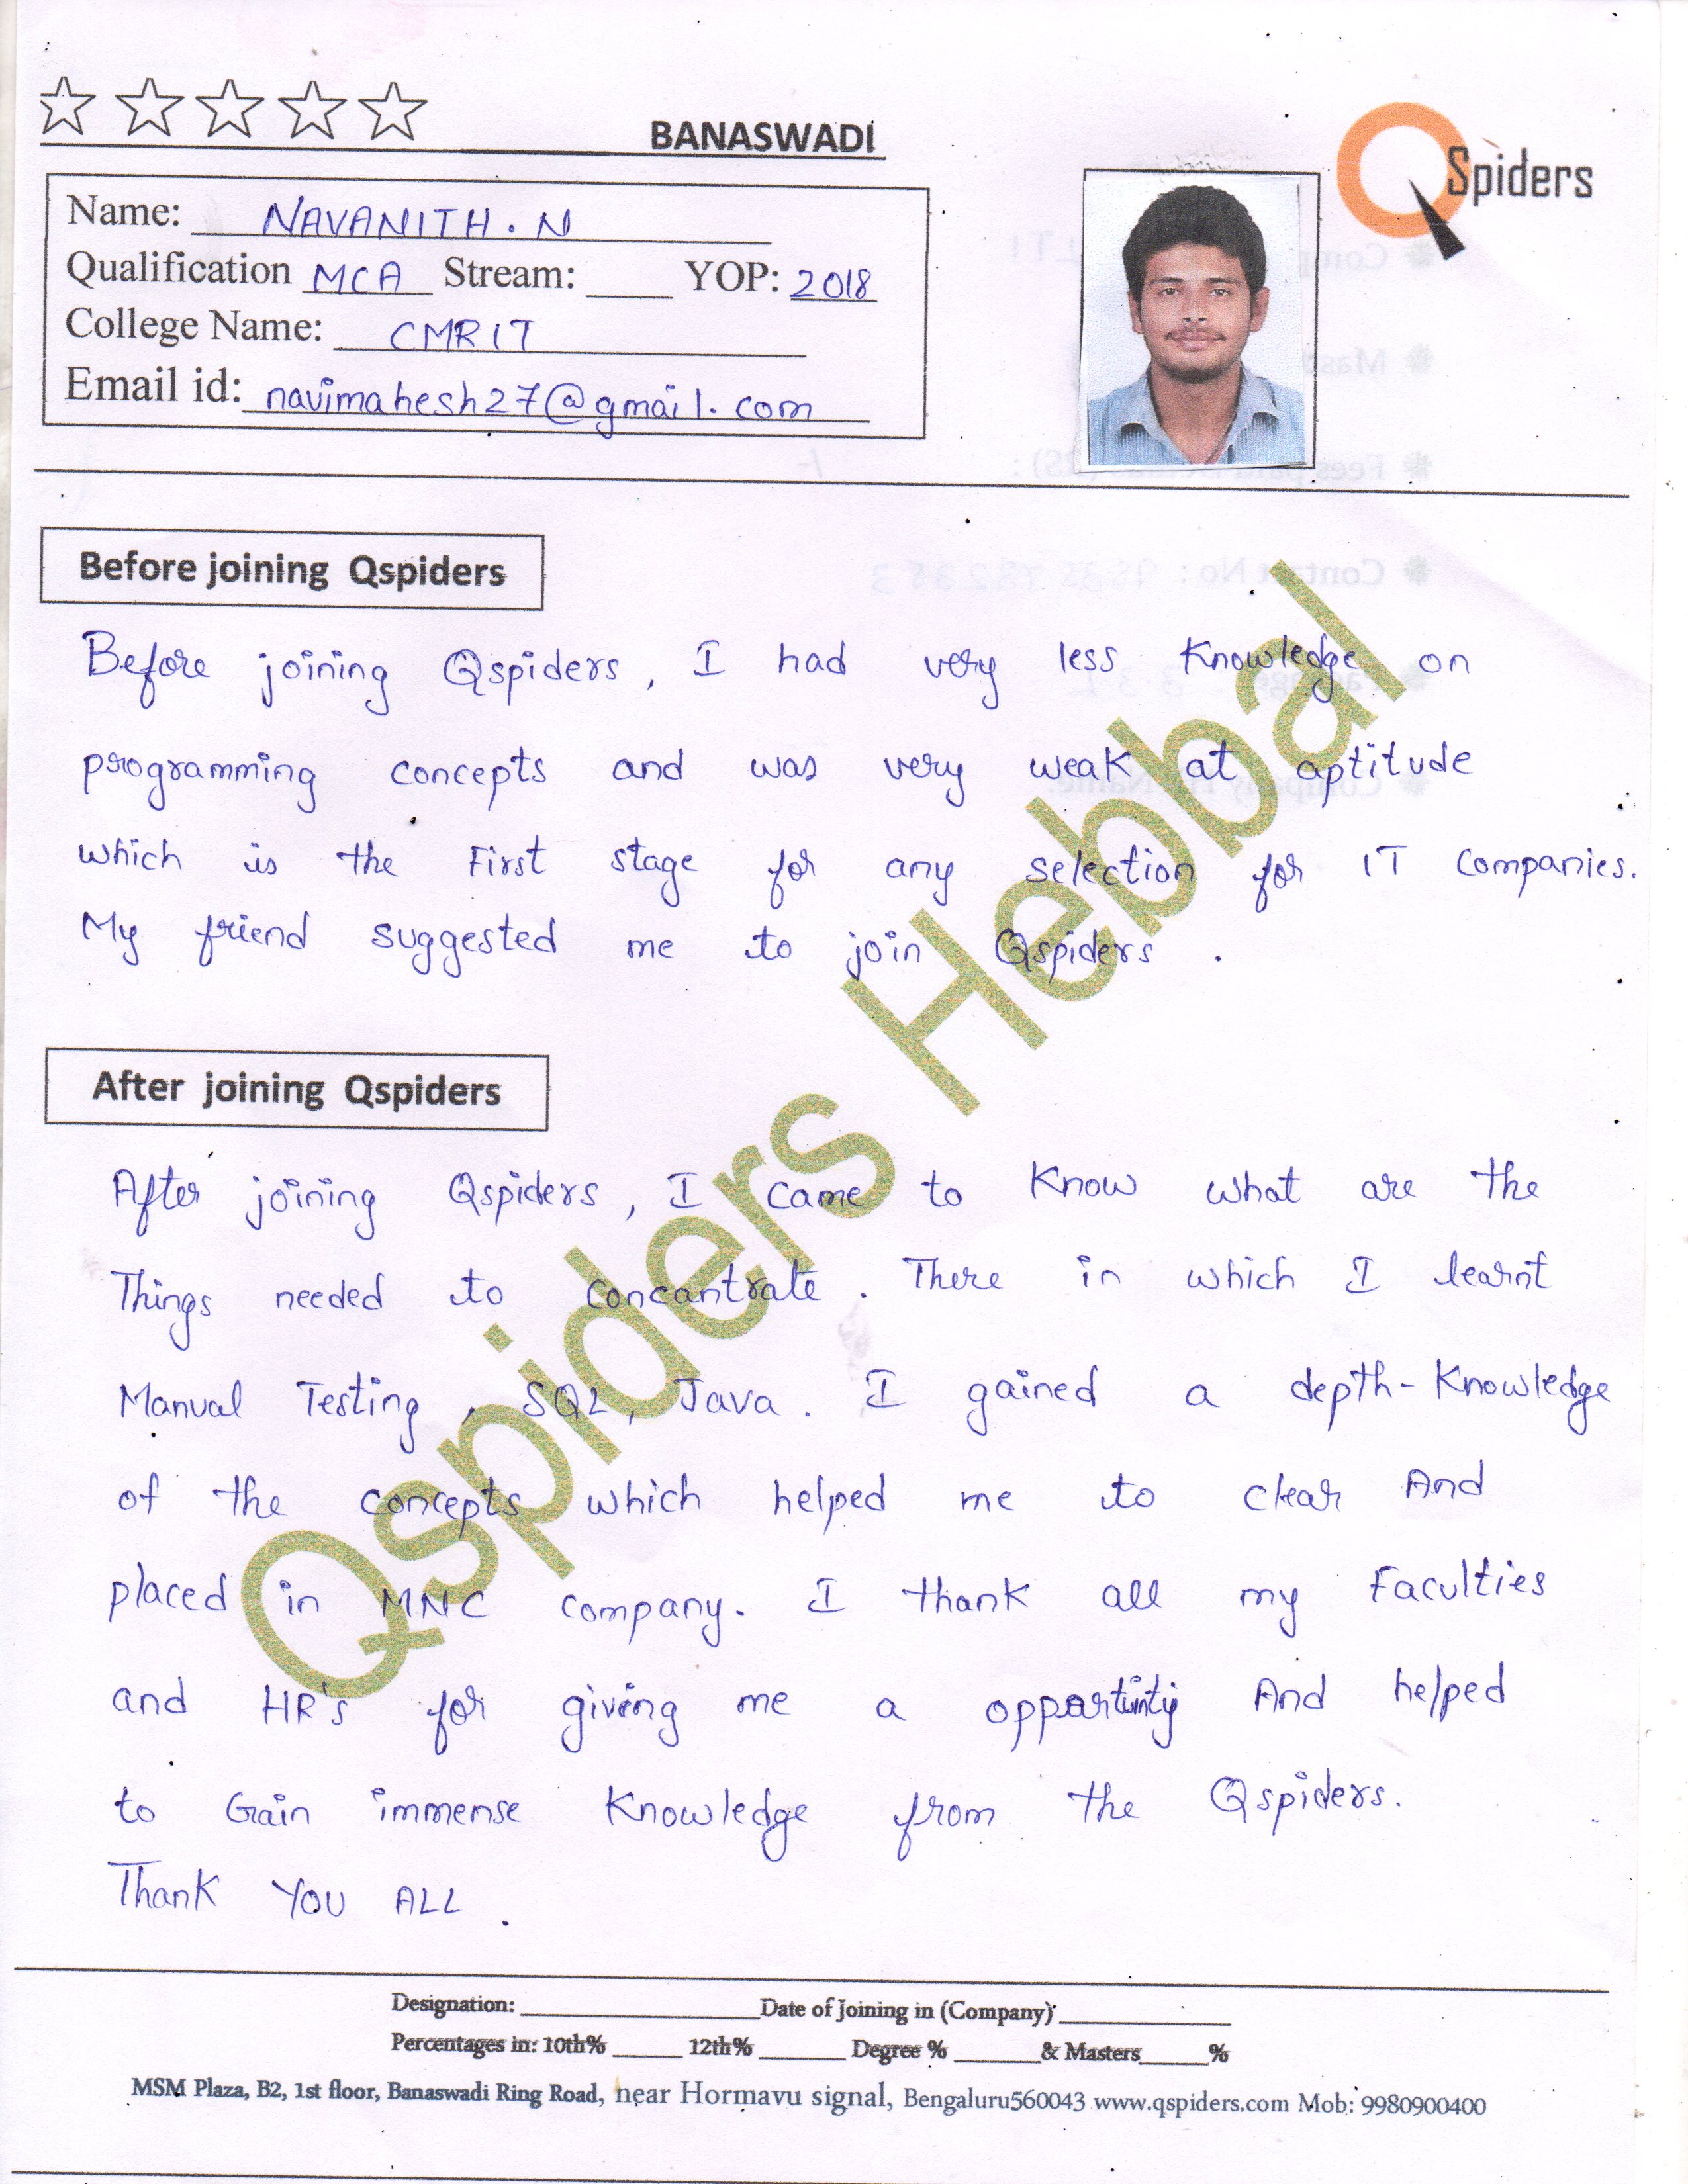 BANASWADI
QSpiders
Name: NAVANITH. N
Qualification MCA Stream: ____ YOP: 2018
College Name: CMRIT
Email id: navimahesh27@gmail.com
Before joining Qspiders
Before joining Qspiders, I had very less Knowledge on
programming concepts and was very weak at aptitude
which is the First stage for any selection for IT Companies.
My friend suggested me to join Qspiders.
After joining Qspiders
After joining Qspiders, I came to Know what are the
Things needed to Concantrate. There in which I learnt
Manual Testing, SQL, Java. I gained a depth-Knowledge
of the concepts which helped me to clear And
placed in MNC company. I thank all my Faculties
and HR's for giving me a opportunity And helped
to Gain immense Knowledge from the Qspiders.
Thank YOU ALL.
Qspiders Hebbal
Designation: ____ Date of Joining in (Company) ____
Percentages in: 10th% ____ 12th% ____ Degree % ____ & Masters ____ %
MSM Plaza, B2, 1st floor, Banaswadi Ring Road, near Hormavu signal, Bengaluru560043 www.qspiders.com Mob: 9980900400